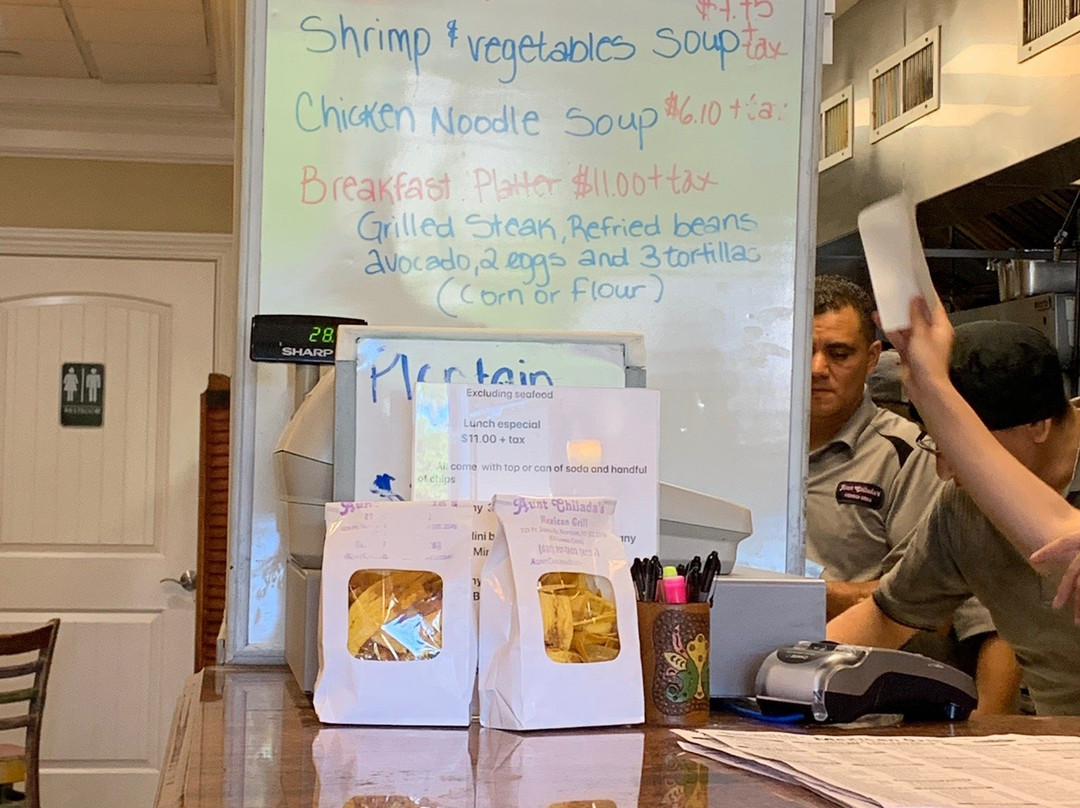 Shrimp & vegetables Soup tax
Chicken Noodle Soup $6.10 + tax
Breakfast Platter $11.00 + tax
Grilled Steak, Refried beans
avocado, 2 eggs and 3 tortillas
(corn or flour)
28.
SHARP
RESTROOM
Plantain
Excluding seafood
Lunch especial
$11.00 + tax
All come with top or can of soda and handful
of chips
any
Aunt Chilada's
Mexican Grill
Aunt Chilada's